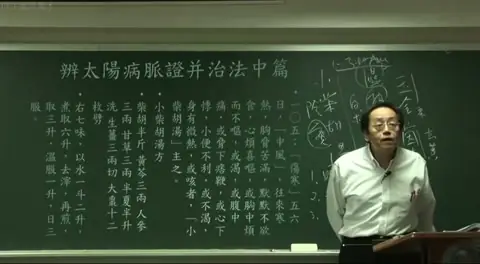 辨太陽病脈證并治法中篇
• 一○五：「傷寒」五六
日，「中風」，往來寒
熱，胸脅苦滿，默默不欲
食，心煩喜嘔，或胸中煩
而不嘔，或渴，或腹中
痛，或脅下痞鞕，或心下
悸，小便不利，或不渴，
身有微熱，或咳者，「小
柴胡湯」主之。
• 小柴胡湯方
• 柴胡半斤 黃芩三兩 人參
三兩 甘草三兩 半夏半升
洗 生薑三兩切 大棗十二
枚劈
• 右七味，以水一斗二升，
煮取六升，去滓，再煎，
取三升，溫服一升，日三
服。
柴胡
1.
2.
3.